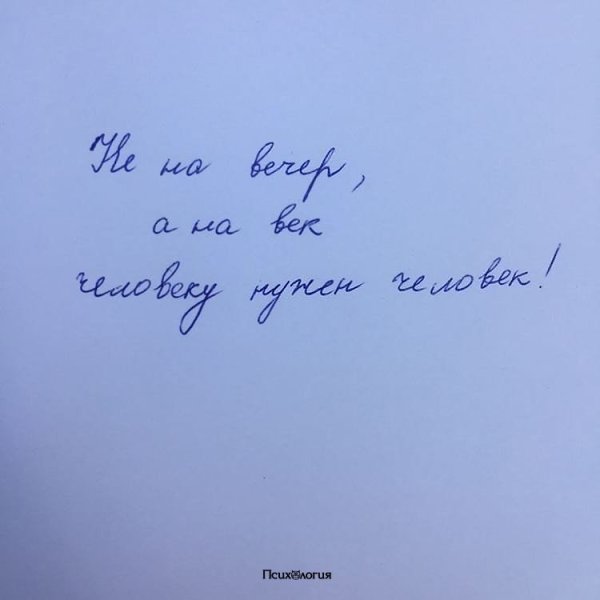 Не на вечер,
а на век
человеку нужен человек!
Психология